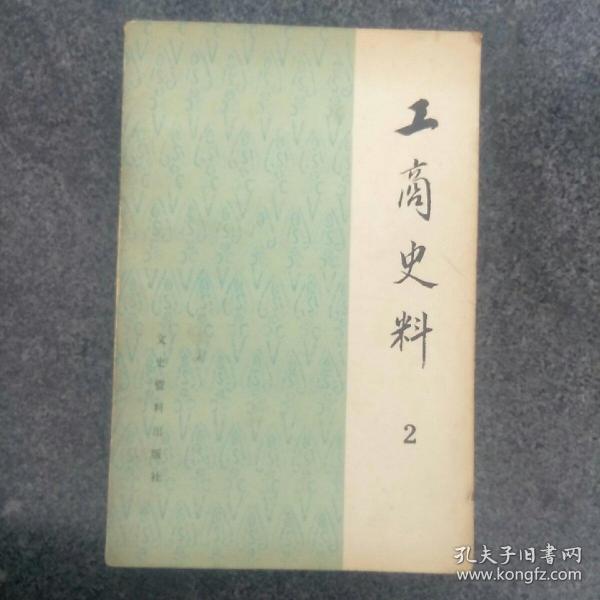 工商史料
2
文史资料出版社
孔夫子旧书网
www.kongfz.com